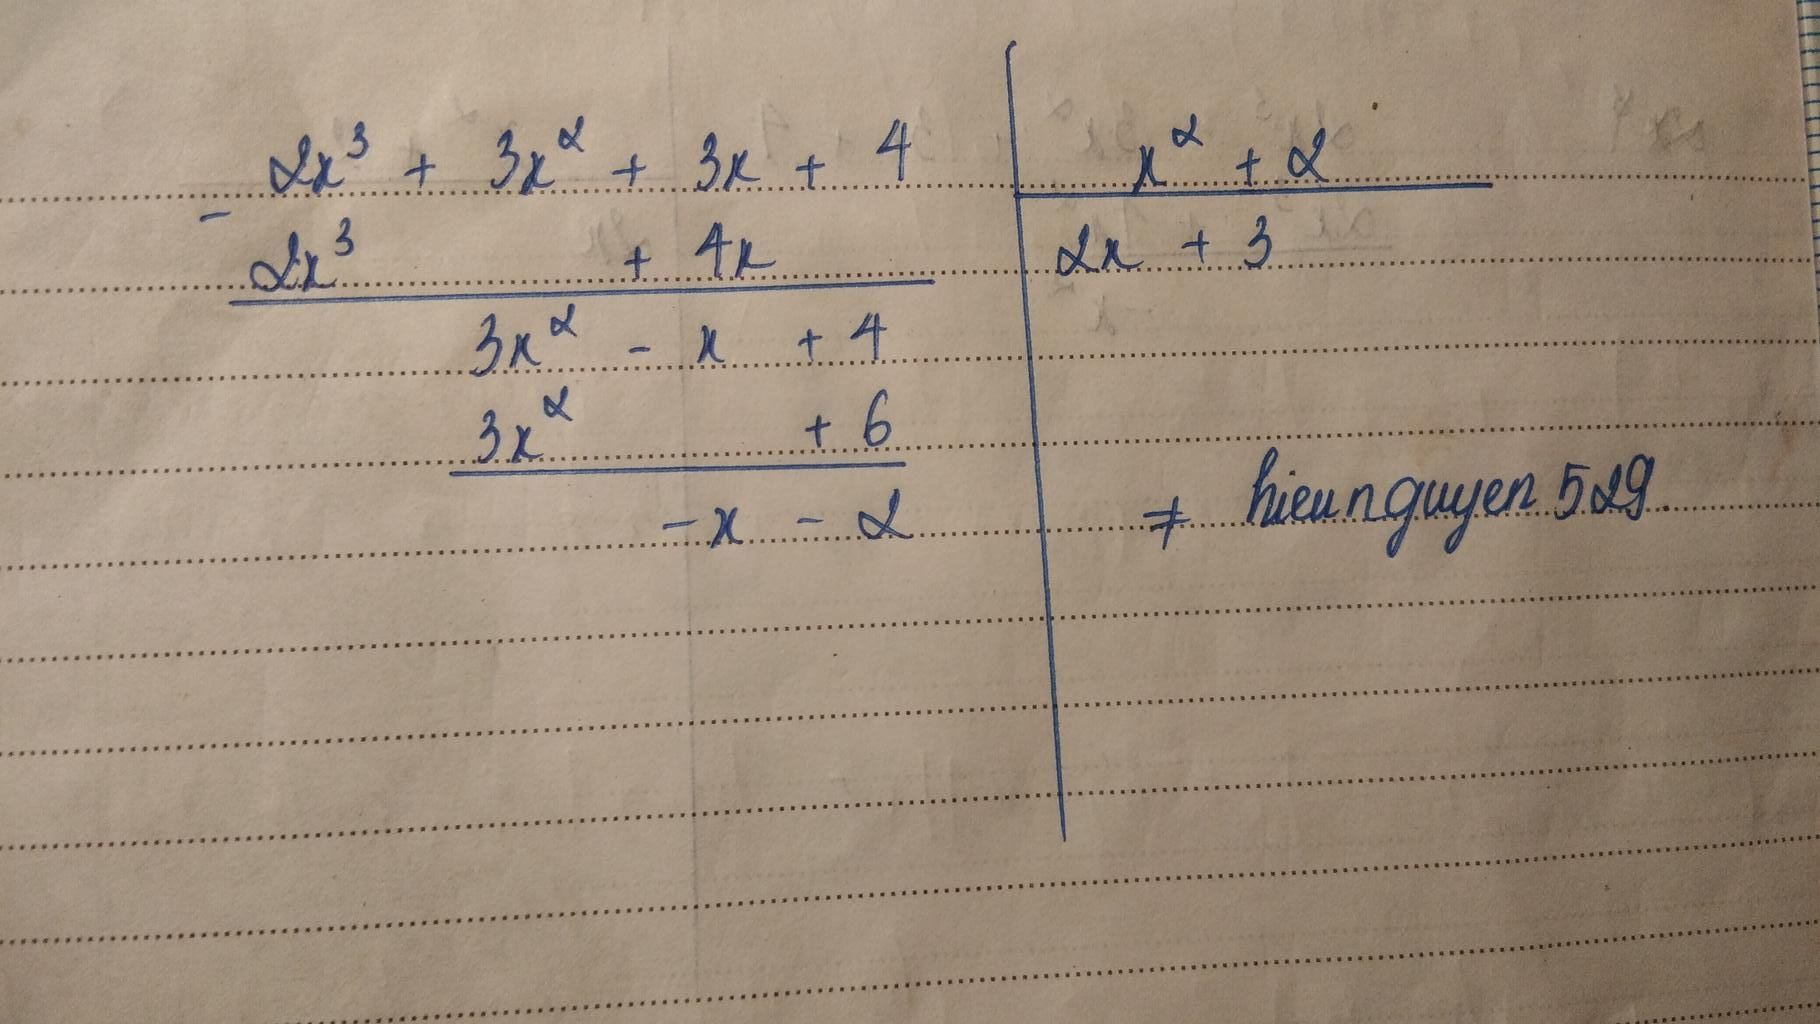 2x³ + 3x² + 3x + 4 | x² + 2
- 2x³ + 4x | 2x + 3
3x² - x + 4
3x² + 6
- x - 2
≠ hieunguyen529.